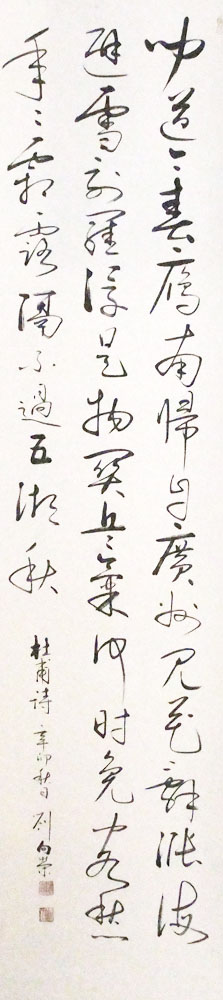 聞道今春鴈南歸自廣州見花辭漲海
避雪到羅浮是物關兵氣何時免客愁
年〻霜露隔不過五湖秋
杜甫詩 辛卯 劉